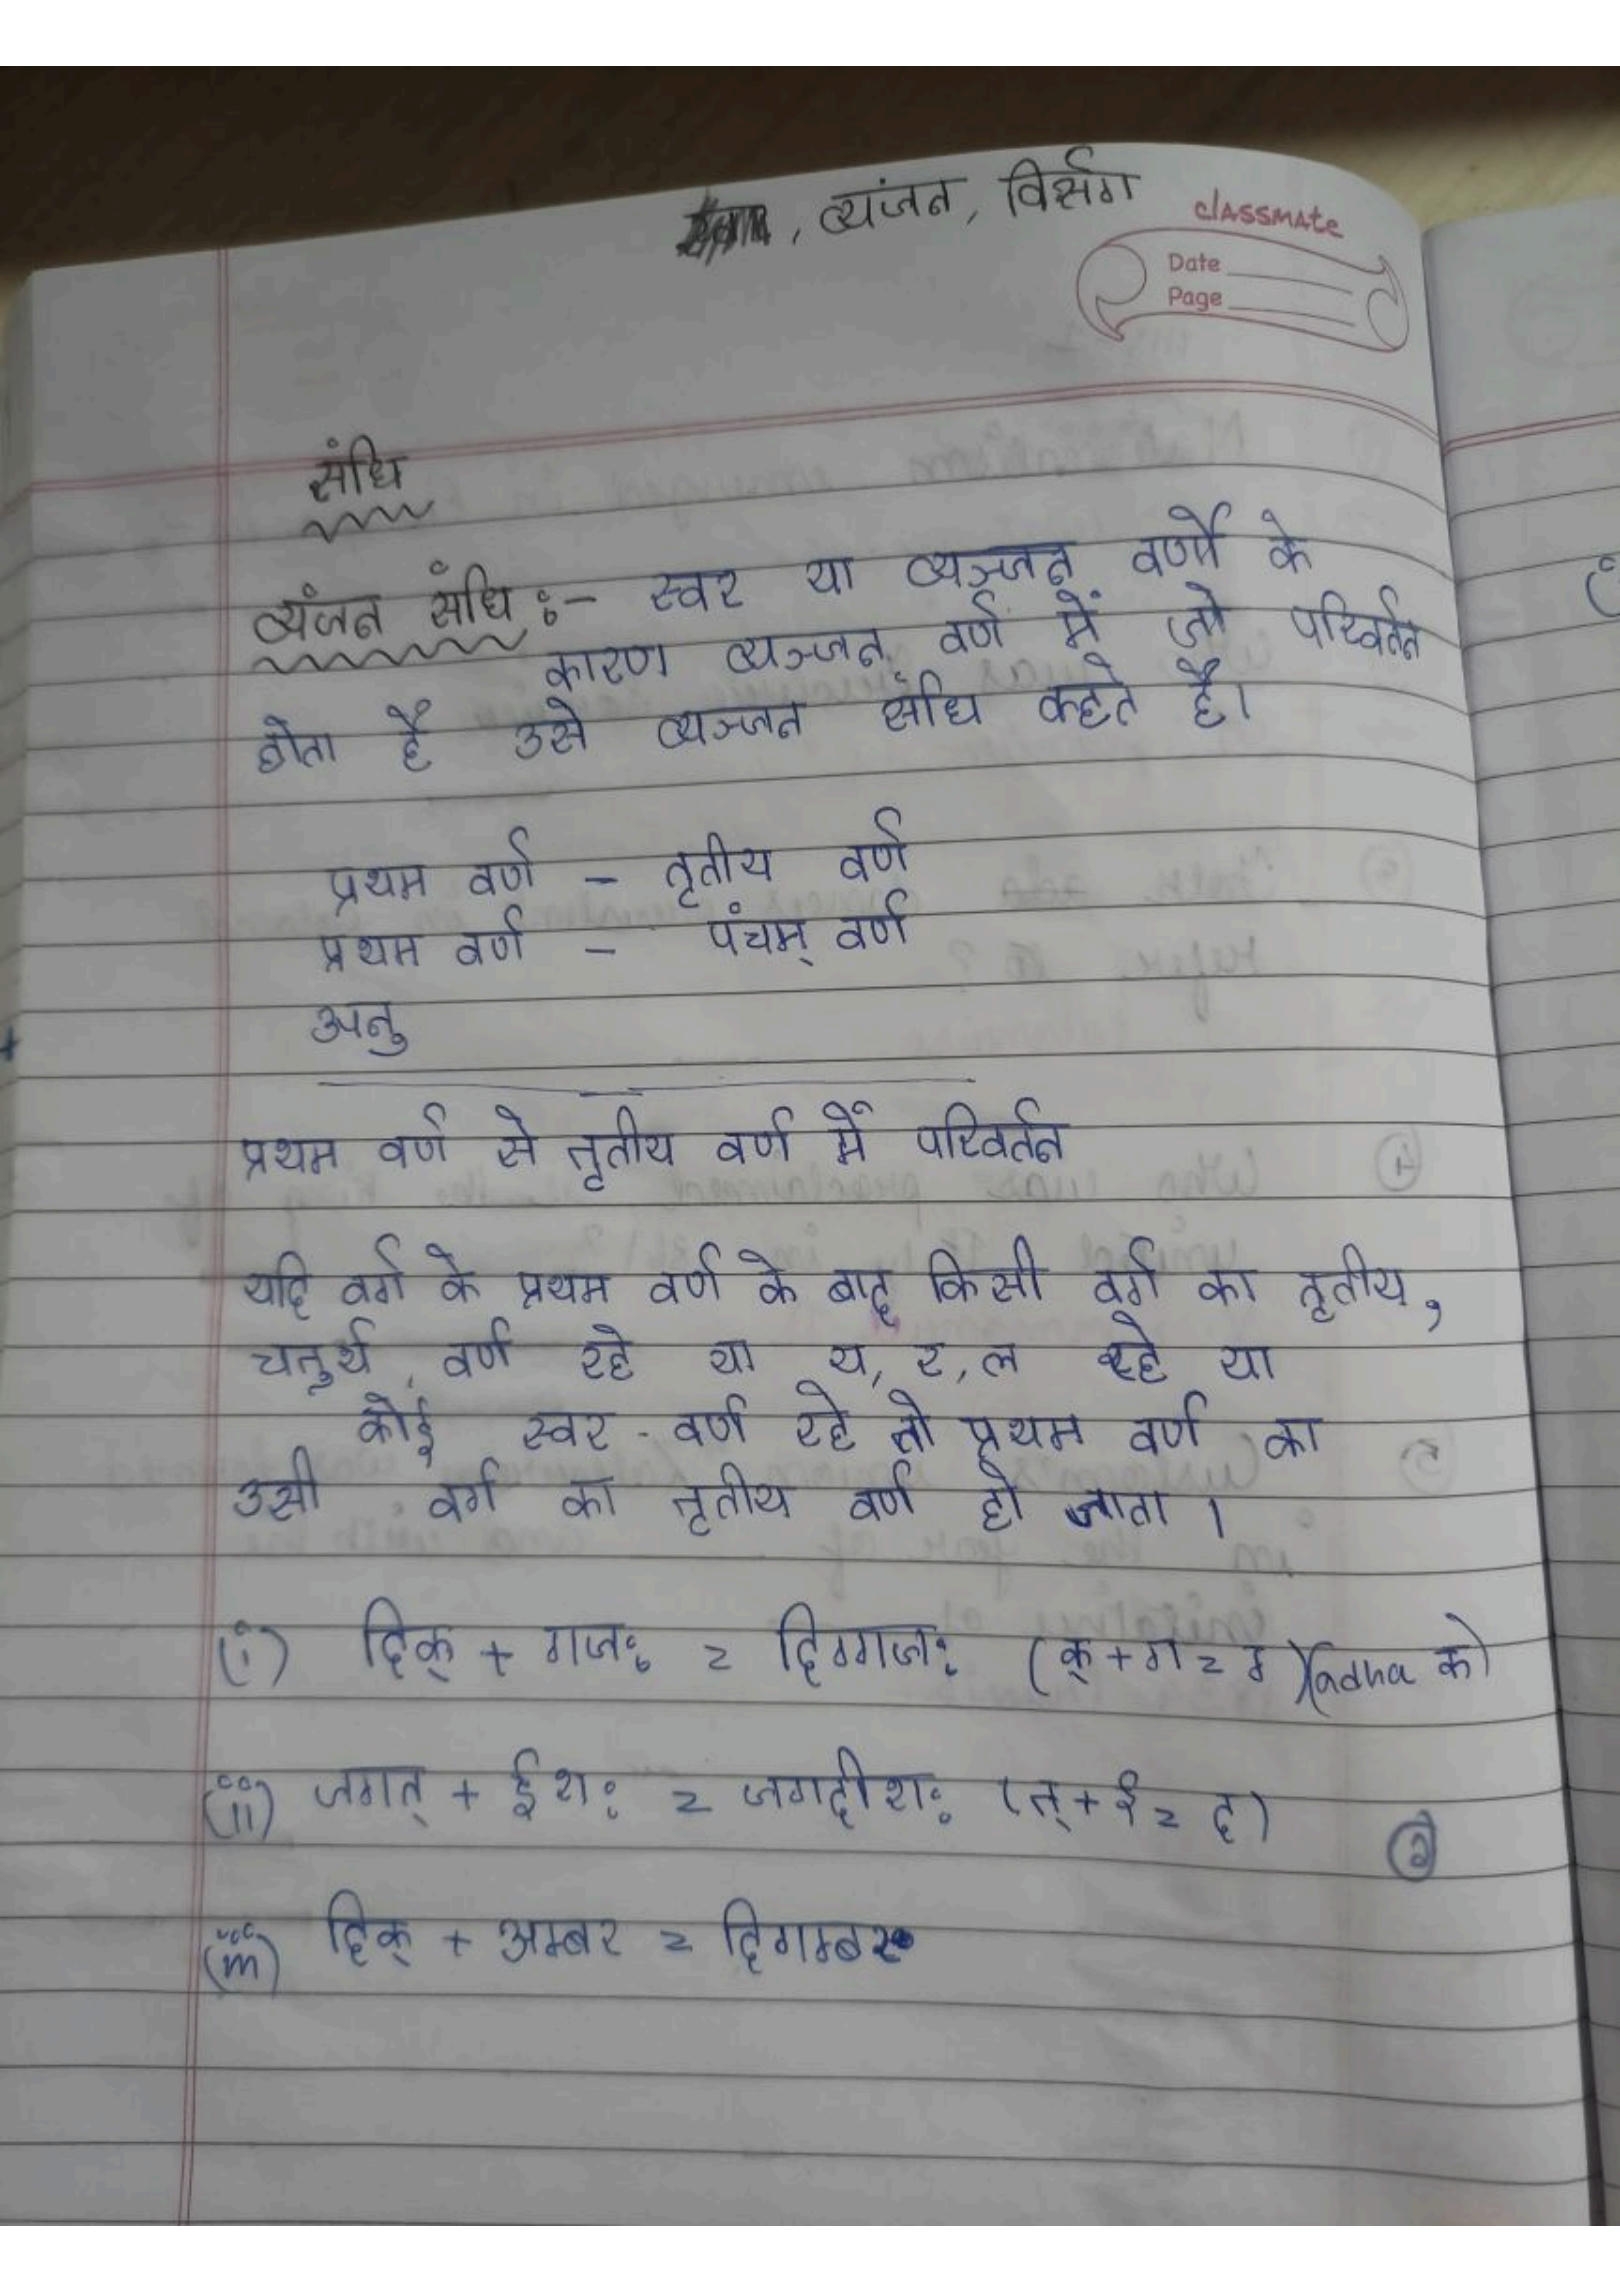 , व्यंजन, विर्सग
classmate
Date
Page
संधि
व्यंजन संधि :- स्वर या व्यञ्जन वर्णों के
कारण व्यञ्जन वर्ण में जो परिवर्तन
होता है उसे व्यञ्जन संधि कहते है।
प्रथम वर्ण - तृतीय वर्ण
प्रथम वर्ण - पंचम् वर्ण
अनु
प्रथम वर्ण से तृतीय वर्ण में परिवर्तन
यदि वर्ग के प्रथम वर्ण के बाद किसी वर्ग का तृतीय,
चतुर्थ, वर्ण रहे या य, र, ल रहे या
कोई स्वर - वर्ण रहे तो प्रथम वर्ण का
उसी वर्ग का तृतीय वर्ण हो जाता ।
(i) दिक् + गजः = दिग्गजः (क् + ग = ग)(adha को)
(ii) जगत् + ईशः = जगदीशः (त् + ई = द)
(iii) दिक् + अम्बर = दिगम्बर